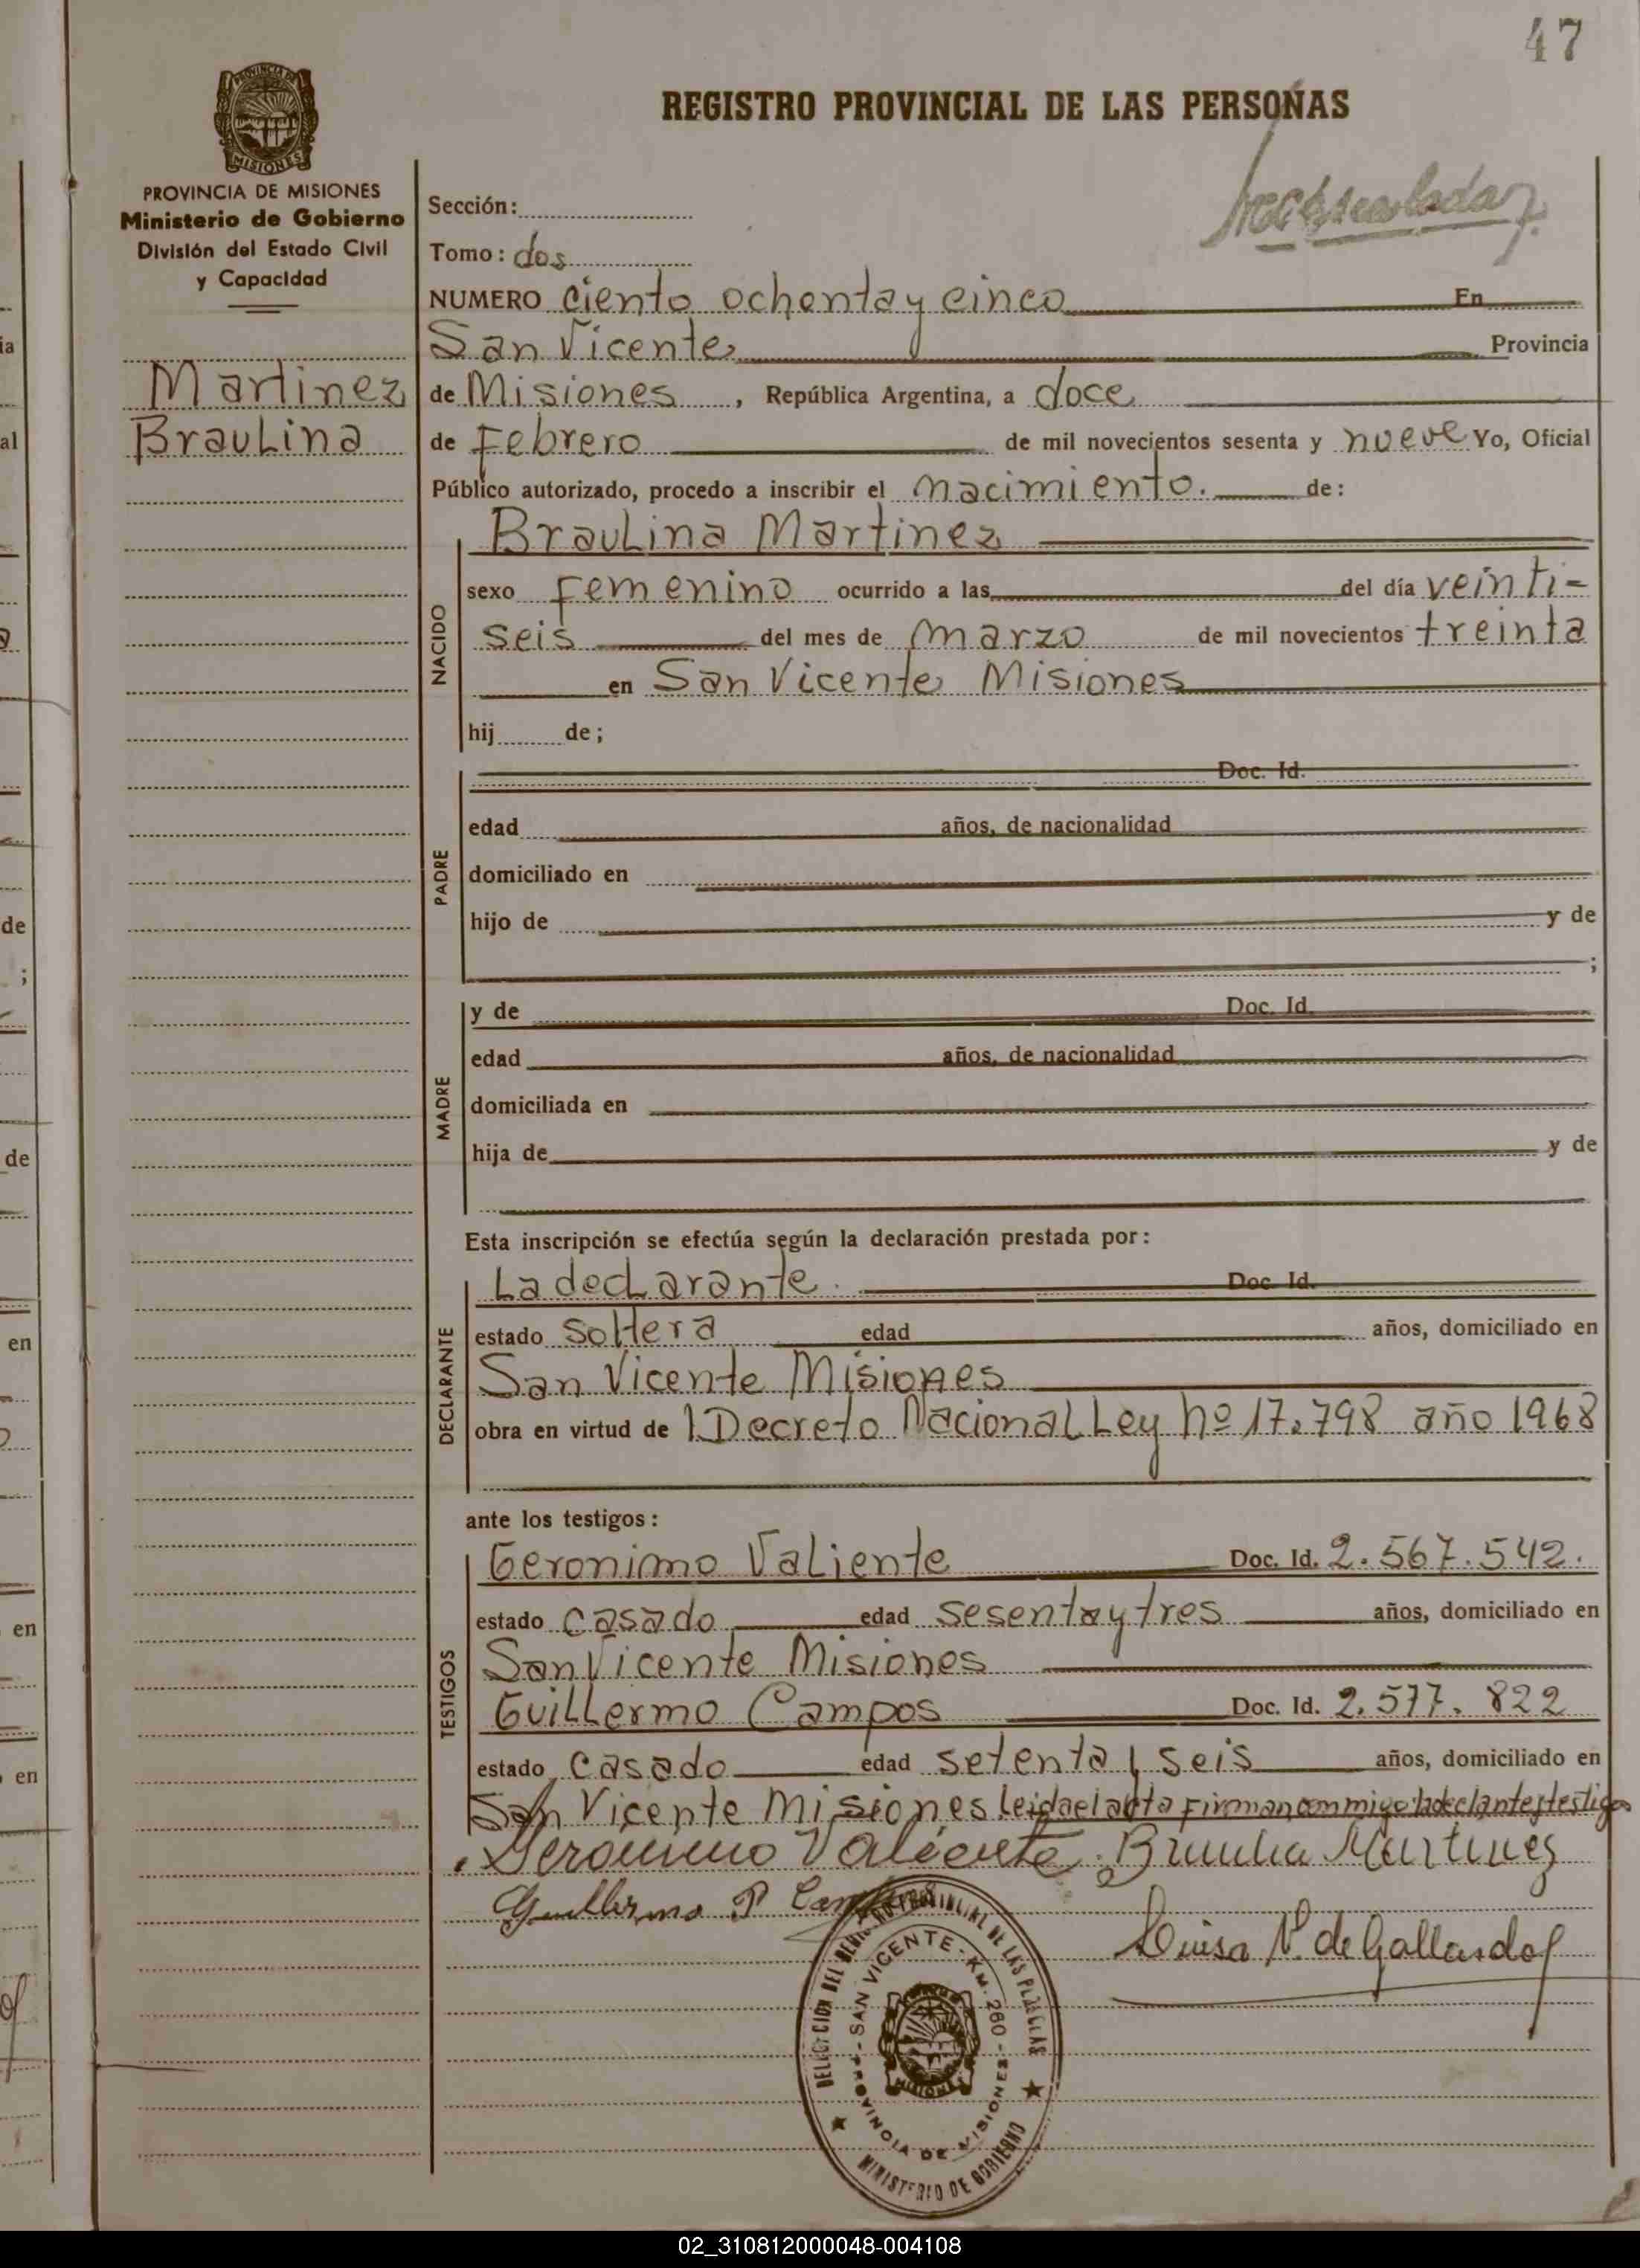 47
REGISTRO PROVINCIAL DE LAS PERSONAS
PROVINCIA DE MISIONES
Ministerio de Gobierno
División del Estado Civil
y Capacidad
Martinez
Braulina
Sección:
Tomo: dos
NUMERO ciento ochenta y cinco En
San Vicente Provincia
de Misiones, República Argentina, a doce
de Febrero de mil novecientos sesenta y nueve Yo, Oficial
Público autorizado, procedo a inscribir el nacimiento. de:
NACIDO
Braulina Martinez
sexo Femenino ocurrido a las del día veinti-
seis del mes de marzo de mil novecientos treinta
en San Vicente Misiones
hij de;
PADRE
Doc. Id.
edad años, de nacionalidad
domiciliado en
hijo de y de
;
MADRE
y de Doc. Id.
edad años, de nacionalidad
domiciliada en
hija de y de
Esta inscripción se efectúa según la declaración prestada por:
DECLARANTE
La declarante. Doc. Id.
estado soltera edad años, domiciliado en
San Vicente Misiones
obra en virtud de l Decreto Nacional Ley nº 17.798 año 1968
ante los testigos:
TESTIGOS
Geronimo Valiente Doc. Id. 2.567.542.
estado casado edad sesenta y tres años, domiciliado en
San Vicente Misiones
Guillermo Campos Doc. Id. 2.577.822
estado casado edad setenta y seis años, domiciliado en
San Vicente Misiones leida el acta Firman conmigo la declante y testigos
Geronimo Valiente Martinez
Guillermo P. Campos
Luisa V. de Gallardo
SAN VICENTE - KM. 260 -
PROVINCIA DE MISIONES
MINISTERIO DE GOBIERNO
MISIONES
ia
al
de
;
de
en
en
en
02_310812000048-004108